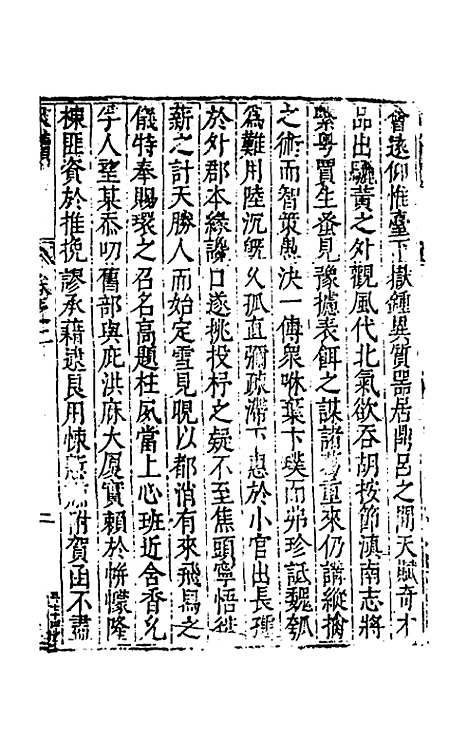 會遠仰惟臺下嶽鍾異質器居鼎呂之間天賦奇才
品出驪黃之外觀風代北氣欲吞胡按節滇南志將
繫粵賈生蚤見豫攄表餌之謀諸葛重來仍講縱擒
之術而智策勇決一傅眾咻葉卞璞而弗珍詆魏瓠
爲難用陸沉旣久孤直彌疏滯下惠於小官出長孺
於外郡本緣讒口遂挑投杼之疑不至焦頭寧悟徙
薪之計天勝人而始定雪見晛以都消有來飛舄之
儀特奉賜環之召名高題柱夙當上心班近含香允
孚人望某忝叨舊部與庇洪庥大厦實賴於帡幪隆
棟匪資於推挽謬承藉逮良用悚附賀函不盡
二